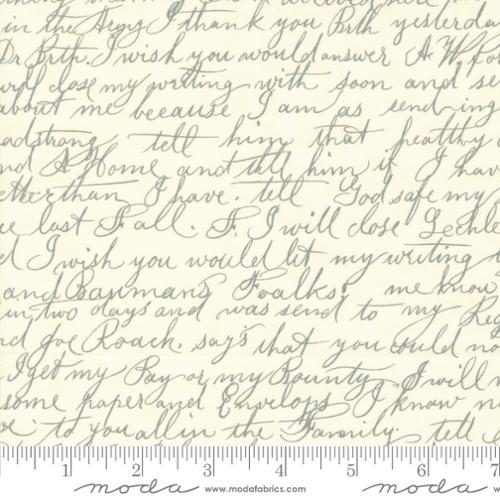 in the Army I thank you Brth yesterda
Dr Brth. I wish you would answer A W.
will close my writing with soon and se
about me because I am as send-ing
adstrong tell him that healthy
nd A Home and till him if I hav
etter than I have. tell God safe my
e last Fall. F. I will close Lechle
d I wish you would let my writing
and Baumans Foalks, me know
in, two days and was send to my Reg
nd Joe Roach. says that you could no
I get my Pay or my Bounty I will
some paper and Envelops I know n
to you all in the Family. tell
1 2 3 4 5 6 7
moda www.modafabrics.com moda